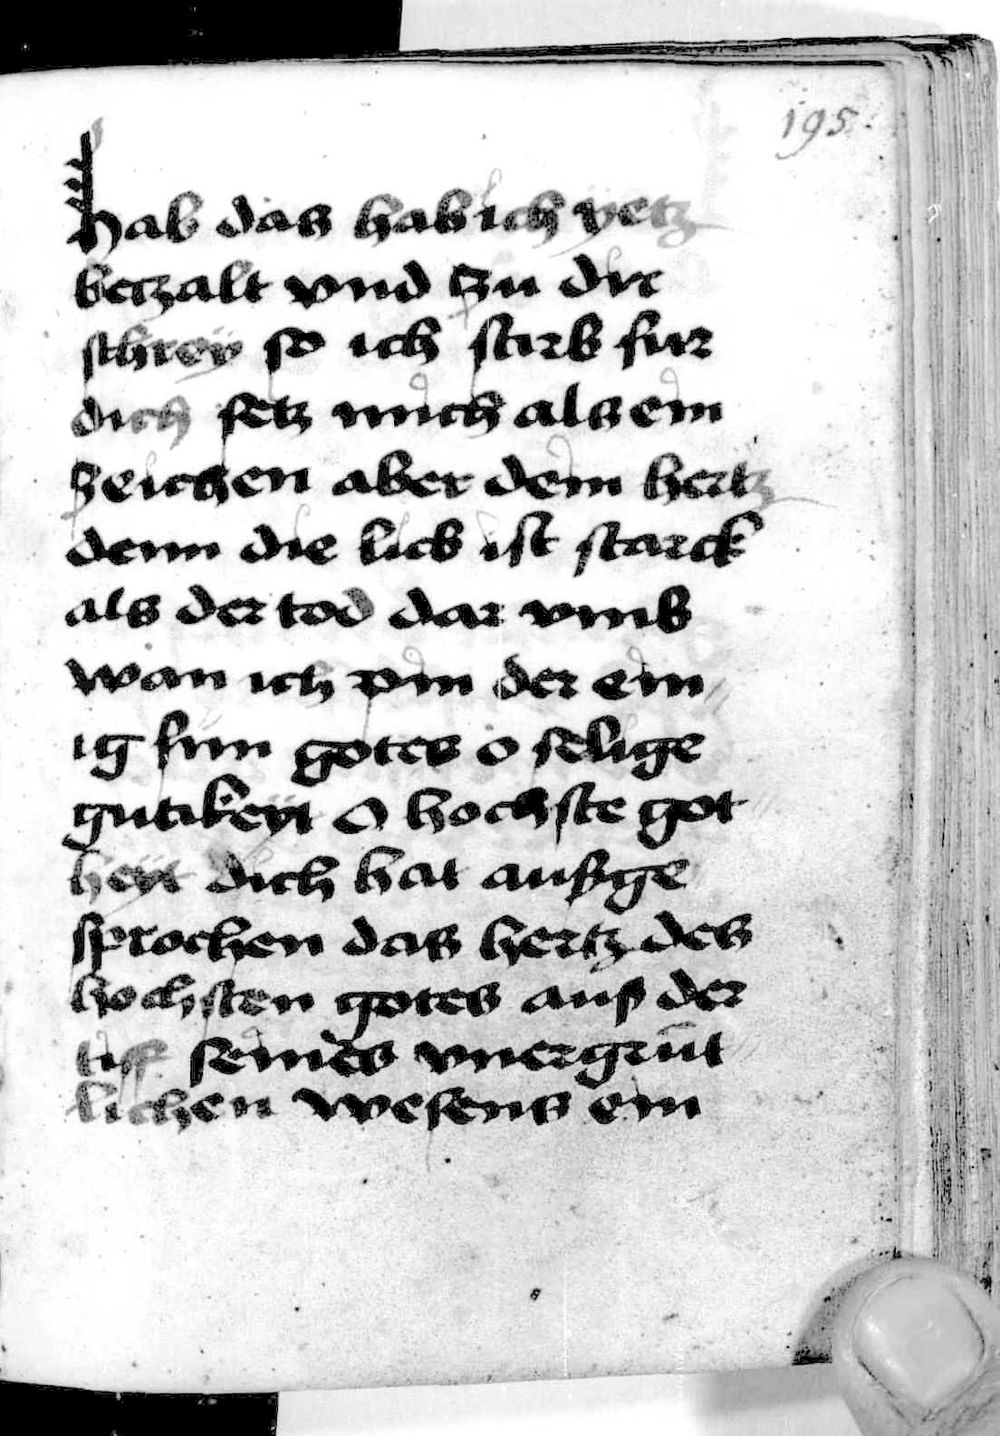 195.
hab das hab ich yetz
betzalt vnd zu dir
schrey so ich starb fur
dich setz mich als ein
zeichen aber dem hertz
denn die lieb ist starck
als der tod dar vmb
wan ich pin der ein
ig sun gotes o selige
gutikeyt O hochste got
heyt dich hat außge
sprochen das hertz des
hochsten gotes auß der
tiff seines vnergrüt
lichen wesens ein